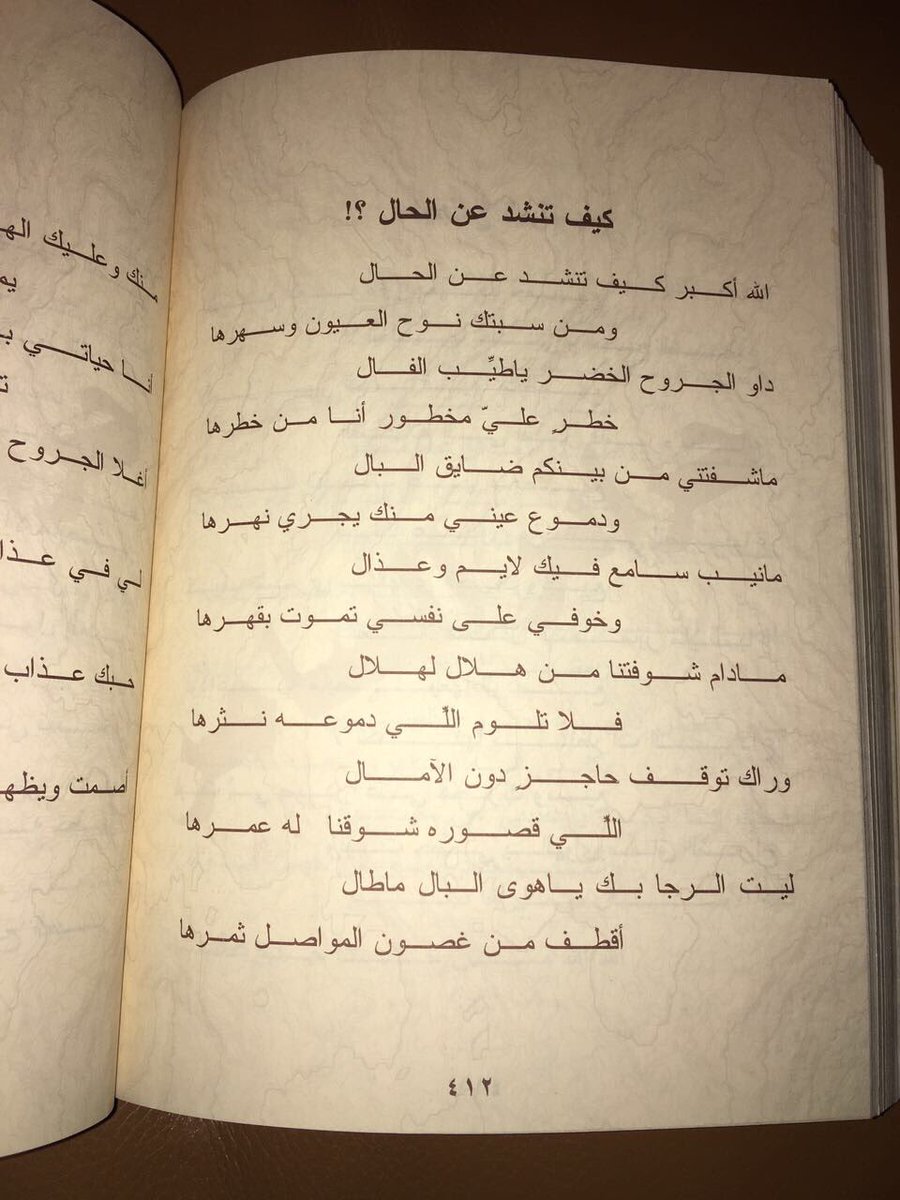 كيف تنشد عن الحال ؟!
الله أكبر كيف تنشد عن الحال
ومن سبتك نوح العيون وسهرها
داو الجروح الخضر ياطيِّب الفال
خطرٍ عليّ مخطور أنا من خطرها
ماشفتني من بينكم ضايق البال
ودموع عيني منك يجري نهرها
مانيب سامع فيك لايم وعذال
وخوفي على نفسي تموت بقهرها
مادام شوفتنا من هلال لهلال
فلا تلوم اللّي دموعه نثرها
وراك توقف حاجزٍ دون الآمال
اللّي قصوره شوقنا له عمرها
ليت الرجا بك ياهوى البال ماطال
أقطف من غصون المواصل ثمرها
٤١٢
منك وعليك
أنا حياتي
أغلا الجروح
لي في
حبك عذاب
أصمت